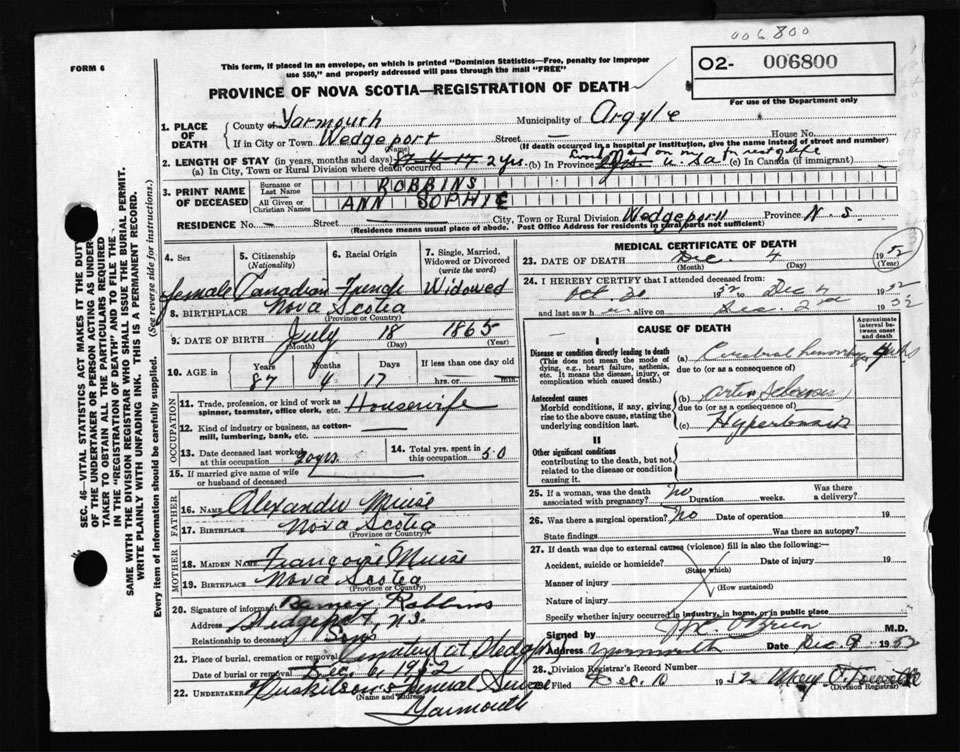 006800
FORM 6
This form, if placed in an envelope, on which is printed "Dominion Statistics—Free, penalty for improper
use $50," and properly addressed will pass through the mail "FREE"
O2- 006800
PROVINCE OF NOVA SCOTIA—REGISTRATION OF DEATH
For use of the Department only
1. PLACE OF DEATH
County of Yarmouth Municipality of Argyle
If in City or Town Wedgeport Street — House No.
(Name) (If death occurred in a hospital or institution, give the name instead of street and number)
2. LENGTH OF STAY (in years, months and days) 2 yrs. (b) In Province U.S.A (c) In Canada (if immigrant) for rest of life
(a) In City, Town or Rural Division where death occurred
3. PRINT NAME OF DECEASED
Surname or Last Name ROBBINS
All Given or Christian Names ANN SOPHIE
RESIDENCE No. — Street City, Town or Rural Division Wedgeport Province N.S.
(Residence means usual place of abode. Post Office Address for residents in rural parts not sufficient)
SEC. 46—VITAL STATISTICS ACT MAKES IT THE DUTY
OF THE UNDERTAKER OR PERSON ACTING AS UNDER-
TAKER TO OBTAIN ALL THE PARTICULARS REQUIRED
IN THE "REGISTRATION OF DEATH" AND TO FILE THE
SAME WITH THE DIVISION REGISTRAR WHO SHALL ISSUE THE BURIAL PERMIT.
WRITE PLAINLY WITH UNFADING INK. THIS IS A PERMANENT RECORD.
Every item of information should be carefully supplied. (See reverse side for instructions.)
4. Sex female
5. Citizenship (Nationality) Canadian
6. Racial Origin French
7. Single, Married, Widowed or Divorced (write the word) Widowed
8. BIRTHPLACE Nova Scotia
(Province or Country)
9. DATE OF BIRTH July 18 1865
(Month) (Day) (Year)
10. AGE in Years Months Days If less than one day old
87 4 17 hrs. or min.
OCCUPATION
11. Trade, profession, or kind of work as spinner, teamster, office clerk, etc. Housewife
12. Kind of industry or business, as cotton-mill, lumbering, bank, etc.
13. Date deceased last worked at this occupation 20 yrs.
14. Total yrs. spent in this occupation 50
15. If married give name of wife or husband of deceased
FATHER
16. NAME Alexander Muise
17. BIRTHPLACE Nova Scotia
(Province or Country)
MOTHER
18. MAIDEN NAME Françoise Muise
19. BIRTHPLACE Nova Scotia
(Province or Country)
20. Signature of informant Robbins
Address Wedgeport, N.S.
Relationship to deceased Son
21. Place of burial, cremation or removal Cemetery at Wedgeport
Date of burial or removal Dec. 6, 1952
22. UNDERTAKER Huskilson's Funeral Service
(Name and address)
Yarmouth
MEDICAL CERTIFICATE OF DEATH
23. DATE OF DEATH Dec. 4 1952
(Month) (Day) (Year)
24. I HEREBY CERTIFY that I attended deceased from:
Oct 1952 to Dec 4 1952
and last saw h er alive on Dec. 2nd 1952
CAUSE OF DEATH
Approximate interval between onset and death
I
Disease or condition directly leading to death
(This does not mean the mode of dying, e.g., heart failure, asthenia, etc. It means the disease, injury, or complication which caused death.)
(a) Cerebral hemorrhage
due to (or as a consequence of)
Antecedent causes
Morbid conditions, if any, giving rise to the above cause, stating the underlying condition last.
(b) Arterio Sclerosis
due to (or as a consequence of)
(c) Hypertension
II
Other significant conditions
contributing to the death, but not related to the disease or condition causing it.
25. If a woman, was the death associated with pregnancy? no Duration weeks. Was there a delivery?
26. Was there a surgical operation? No Date of operation 19
State findings Was there an autopsy?
27. If death was due to external causes (violence) fill in also the following:—
Accident, suicide or homicide? Date of injury 19
(State which)
Manner of injury
(How sustained)
Nature of injury
Specify whether injury occurred in industry, in home, or in public place
Signed by O'Brien M.D.
Address Yarmouth Date Dec. 9 1952
28. Division Registrar's Record Number
Filed Dec. 10 1952 Mary
(Division Registrar)